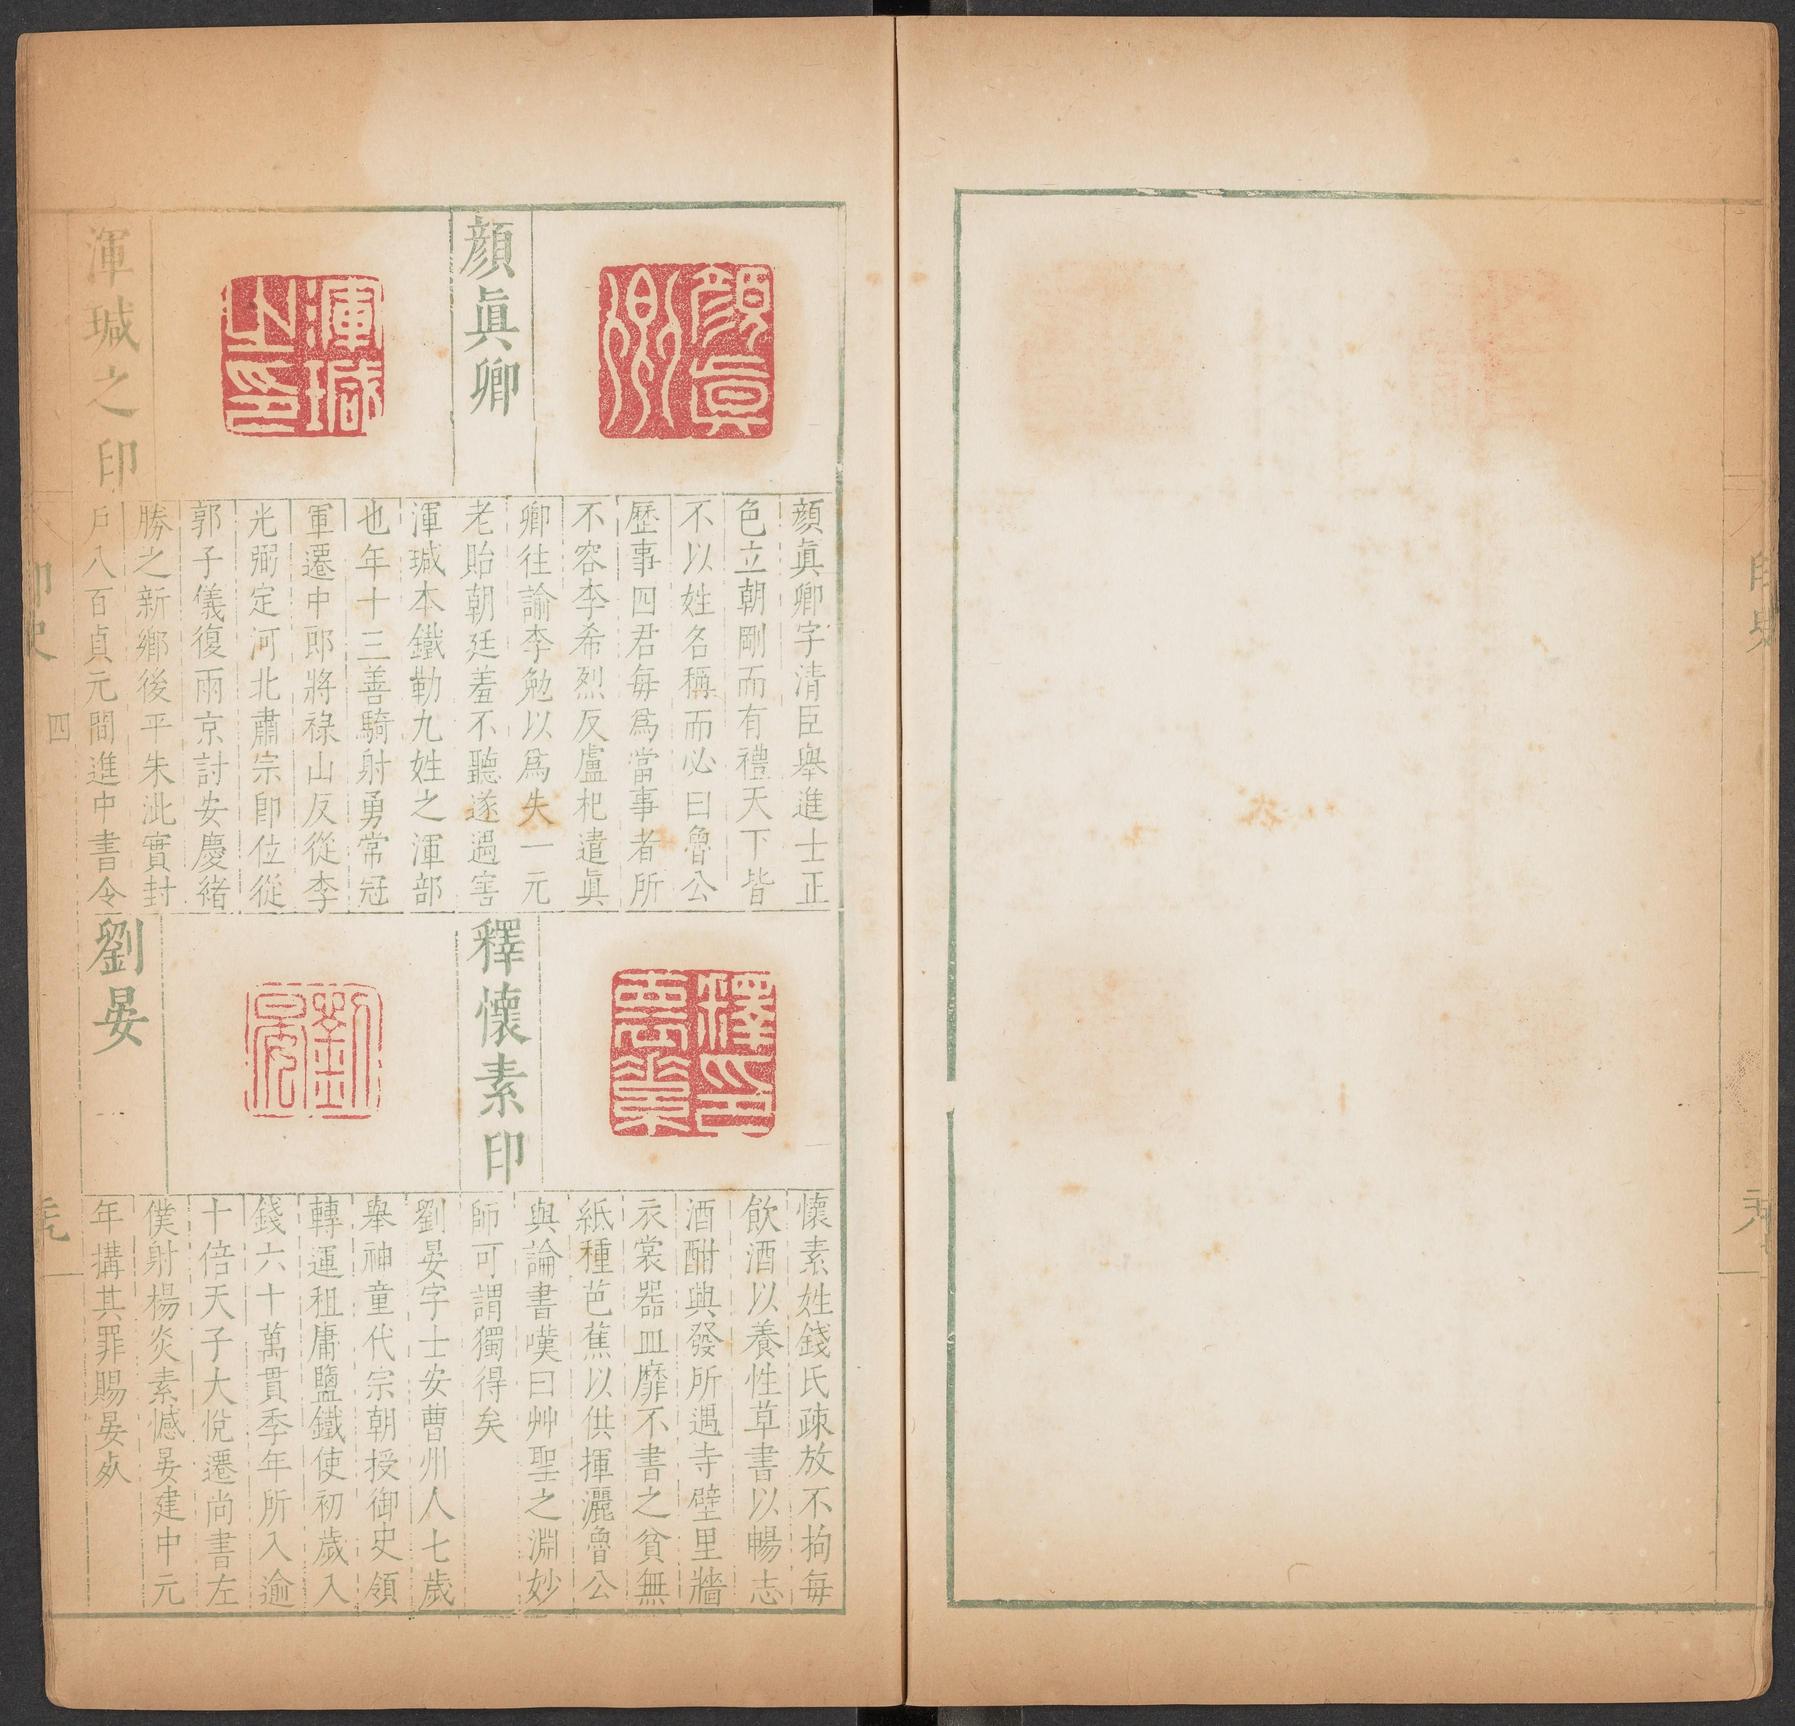 顔眞卿
顔眞卿字清臣舉進士正
色立朝剛而有禮天下皆
不以姓名稱而必曰魯公
歷事四君毎爲當事者所
不容李希烈反盧杞遣眞
卿往諭李勉以爲失一元
老貽朝廷羞不聽遂遇害
渾瑊之印
渾瑊本鐵勒九姓之渾部
也年十三善騎射勇常冠
軍遷中郎將祿山反從李
光弼定河北肅宗卽位從
郭子儀復兩京討安慶緒
勝之新鄉後平朱泚實封
戶八百貞元間進中書令
釋懷素印
懷素姓錢氏疎放不拘毎
飲酒以養性草書以暢志
酒酣興發所遇寺壁里牆
衣裳器皿靡不書之貧無
紙種芭蕉以供揮灑魯公
與論書嘆曰艸聖之淵妙
師可謂獨得矣
劉晏
劉晏字士安曹州人七歲
舉神童代宗朝授御史領
轉運租庸鹽鐵使初歲入
錢六十萬貫季年所入逾
十倍天子大悅遷尚書左
僕射楊炎素憾晏建中元
年搆其罪賜晏死
顔眞卿
渾瑊之印
釋懷素印
劉晏
印史
四